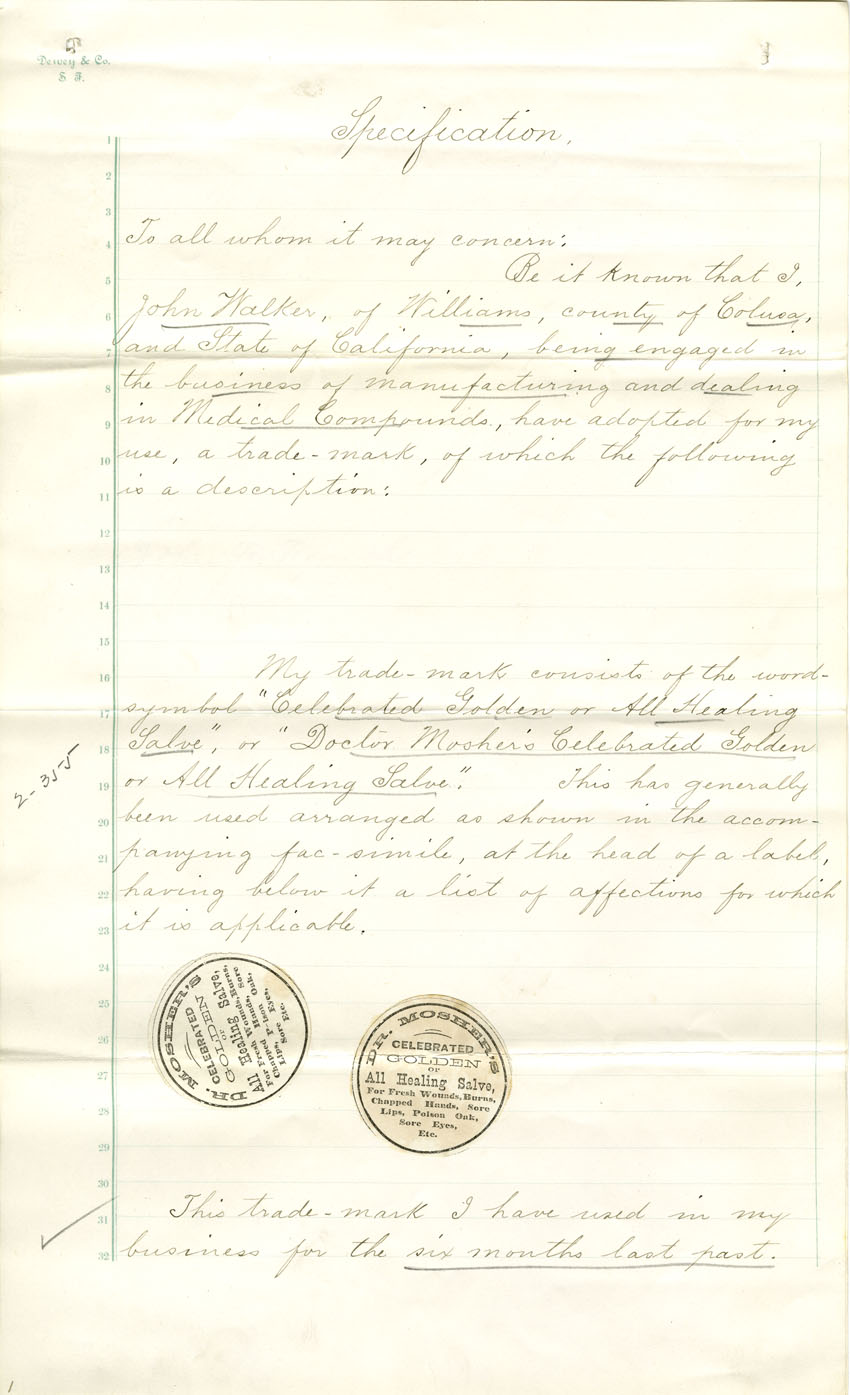 Dewey & Co.
S F.
Specification.
1
2
3
4 To all whom it may concern:
5 Be it known that I,
6 John Walker, of Williams, county of Colusa,
7 and State of California, being engaged in
8 the business of manufacturing and dealing
9 in Medical Compounds, have adopted for my
10 use, a trade-mark, of which the following
11 is a description:
12
13
14
15
16 My trade-mark consists of the word-
17 symbol "Celebrated Golden or All Healing
18 Salve", or "Doctor Mosher's Celebrated Golden
19 or All Healing Salve". This has generally
20 been used arranged as shown in the accom-
21 panying fac-simile, at the head of a label,
22 having below it a list of affections for which
23 it is applicable.
2-355
24
25
26
27
28
29
30
DR. MOSHER'S
CELEBRATED
GOLDEN
OR
All Healing Salve,
For Fresh Wounds, Burns,
Chapped Hands, Sore
Lips, Poison Oak,
Sore Eyes,
Etc.
DR. MOSHER'S
CELEBRATED
GOLDEN
OR
All Healing Salve,
For Fresh Wounds, Burns,
Chapped Hands, Sore
Lips, Poison Oak,
Sore Eyes,
Etc.
31 This trade-mark I have used in my
32 business for the six months last past.
1